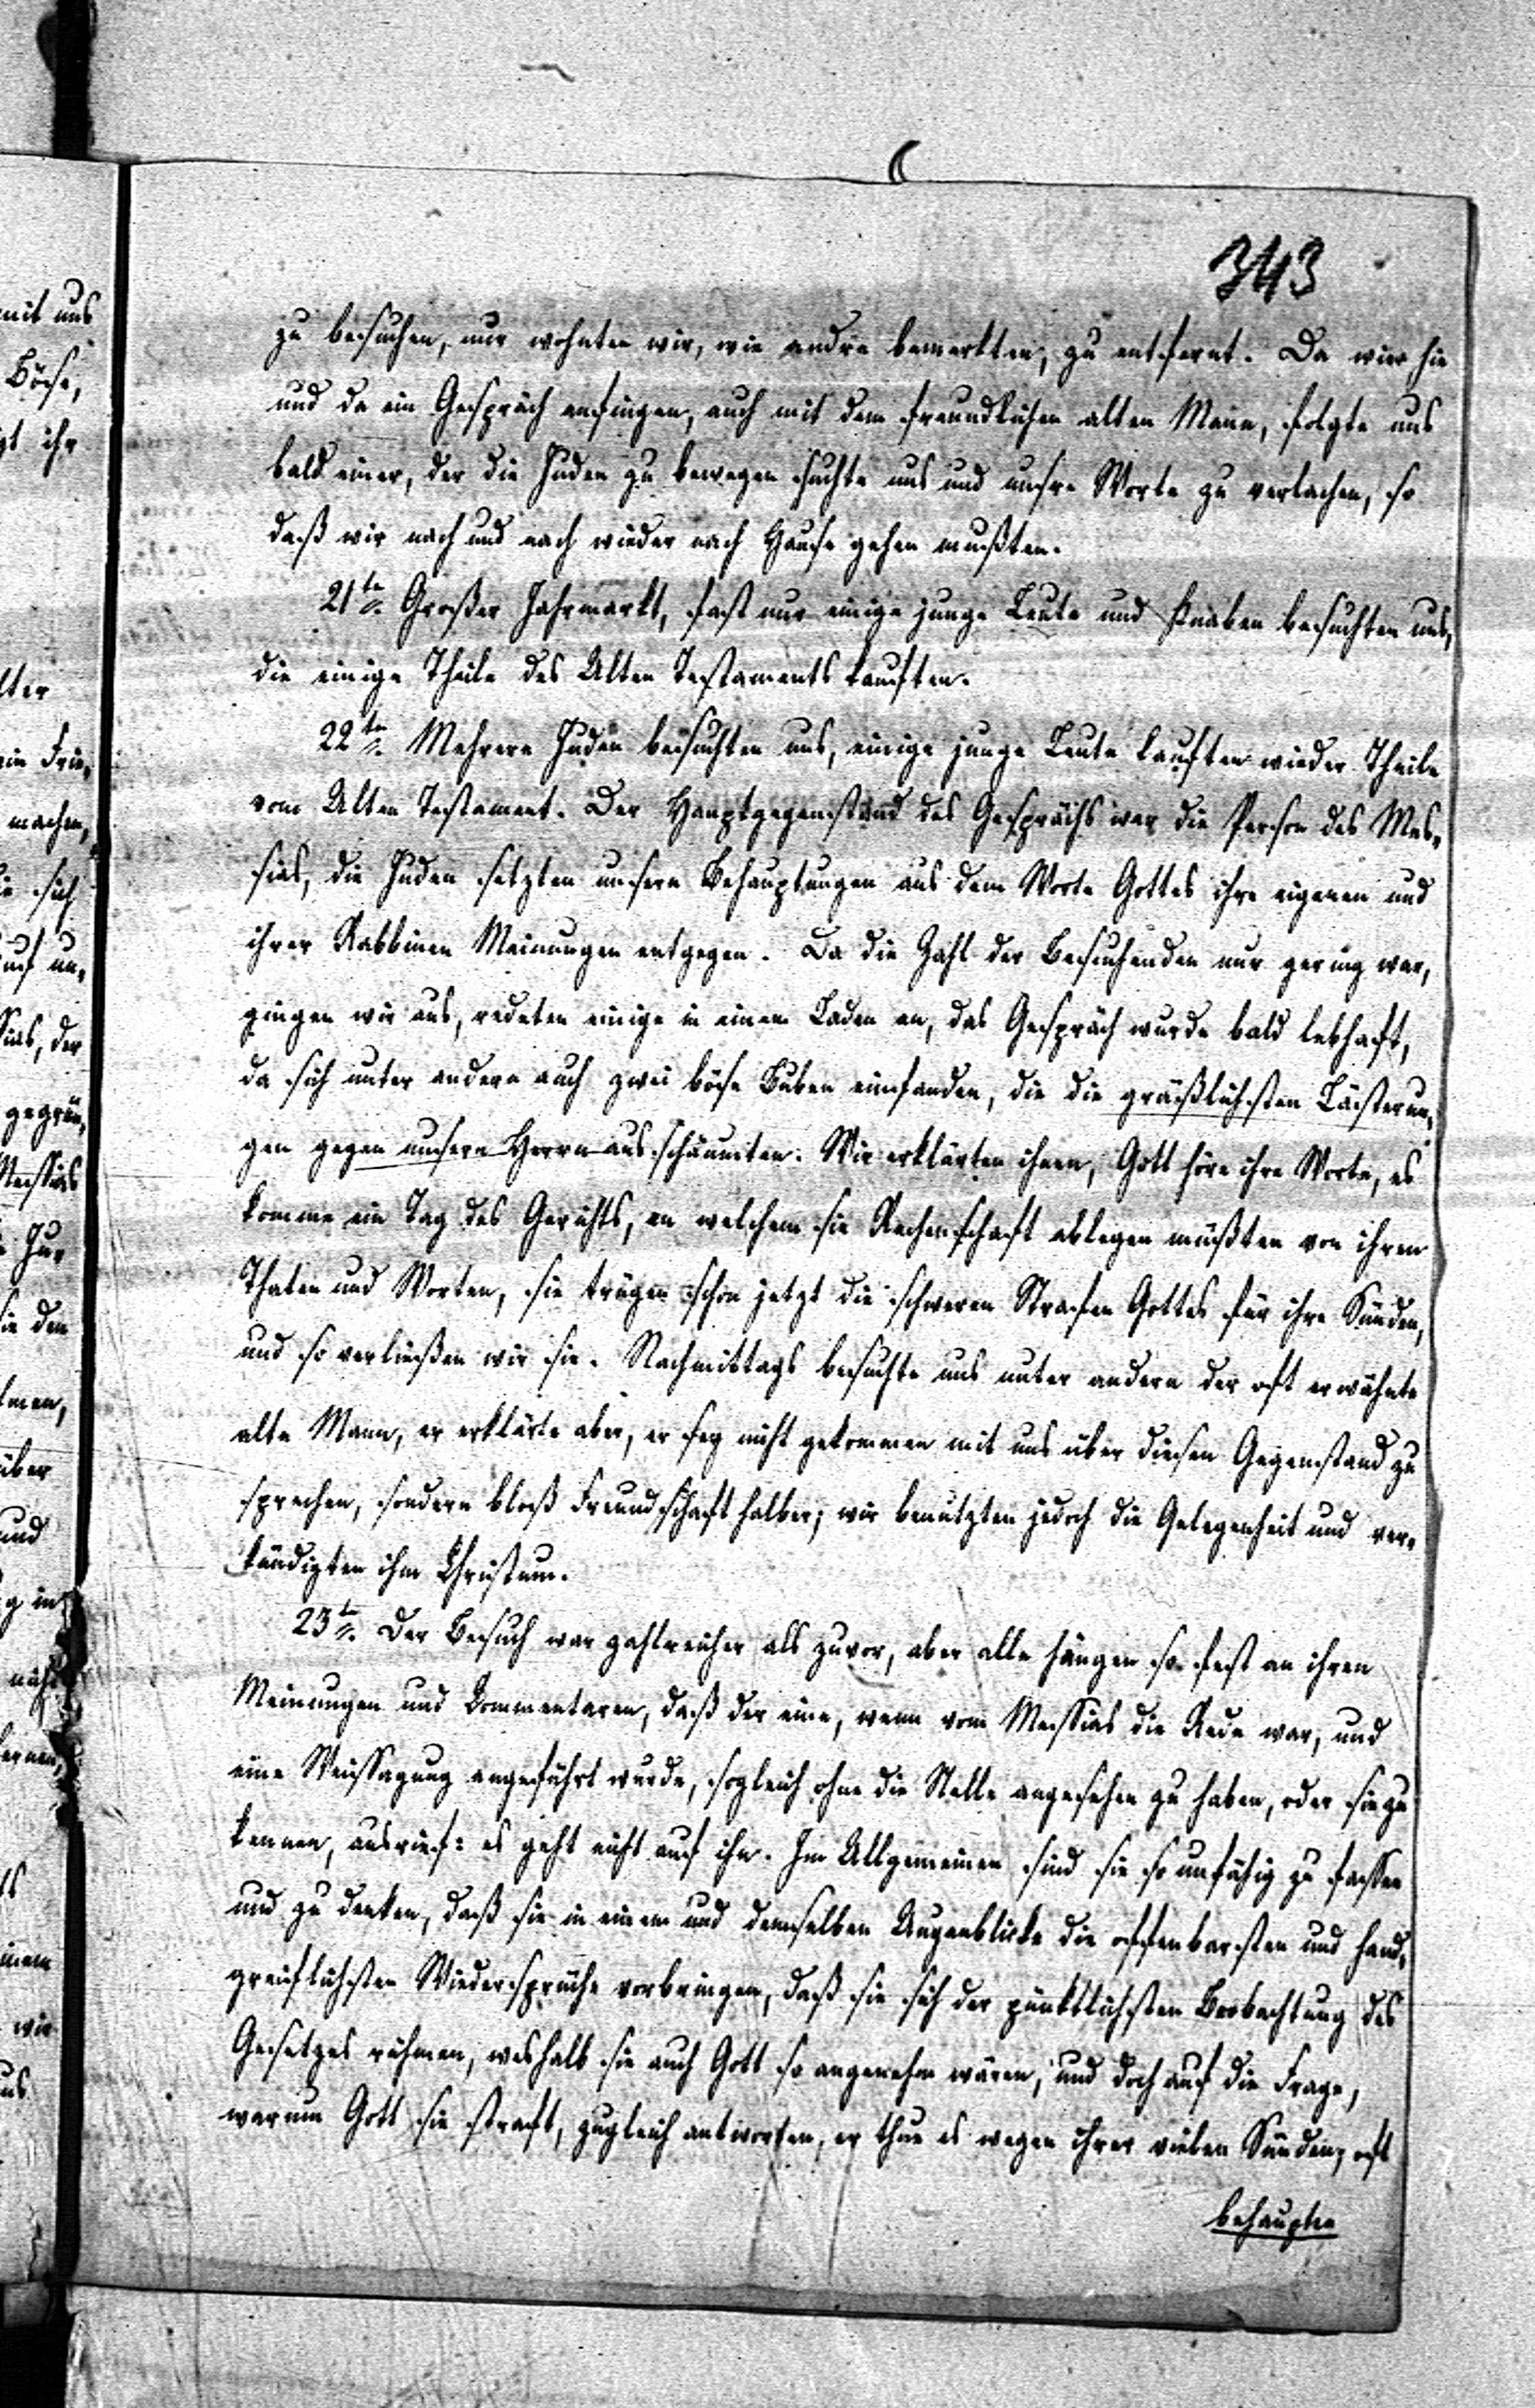 343
zu besuchen, nur wohnten wir, wie andre bemerkten, zu entfernt. Da wir hie
und da ein Gespräch anfingen, auch mit dem freundlichen alten Mann, folgte uns
bald einer, der die Juden zu bewegen suchte uns und unsre Worte zu verlachen, so
daß wir nach und nach wieder nach Hause gehen mußten.
21te. Großer Jahrmarkt, fast nur einige junge Leute und Knaben besuchten uns,
die einige Theile des Alten Testaments kauften.
22te. Mehrere Juden besuchten uns, einige junge Leute kauften wieder Theile
vom Alten Testament. Der Hauptgegenstand des Gesprächs war die Person des Mes-
sias, die Juden setzten unsern Behauptungen aus dem Worte Gottes ihre eigenen und
ihrer Rabbinen Meinungen entgegen. Da die Zahl der Besuchenden nur gering war,
gingen wir aus, redeten einige in einem Laden an, das Gespräch wurde bald lebhaft,
da sich unter andern auch zwei böse Buben einfanden, die die gräßlichsten Lästerun-
gen gegen unsern Herrn ausschäumten. Wir erklärten ihnen, Gott höre ihre Worte, es
komme ein Tag des Gerichts, an welchem sie Rechenschaft ablegen müßten von ihren
Thaten und Worten, sie trügen schon jetzt die schweren Strafen Gottes für ihre Sünden,
und so verließen wir sie. Nachmittags besuchte uns unter andern der oft erwähnte
alte Mann, er erklärte aber, er sey nicht gekommen mit uns über diesen Gegenstand zu
sprechen, sondern bloß Freundschaft halber; wir benutzten jedoch die Gelegenheit und ver-
kündigten ihm Christum.
23te. Der Besuch war zahlreicher als zuvor, aber alle hängen so fest an ihren
Meinungen und Commentaren, daß der eine, wenn vom Messias die Rede war, und
eine Weissagung angeführt wurde, sogleich ohne die Stelle angesehen zu haben, oder sie zu
kennen, ausrief: es geht nicht auf ihn. Im Allgemeinen sind sie so unfähig zu fassen
und zu denken, daß sie in einem und demselben Augenblicke die offenbarsten und hand-
greiflichsten Wiedersprüche vorbringen, daß sie sich der pünktlichsten Beobachtung des
Gesetzes rühmen, weshalb sie auch Gott so angenehm wären, und doch auf die Frage,
warum Gott sie straft, zugleich antworten, er thue es wegen ihrer vielen Sünden, oft
behaupten